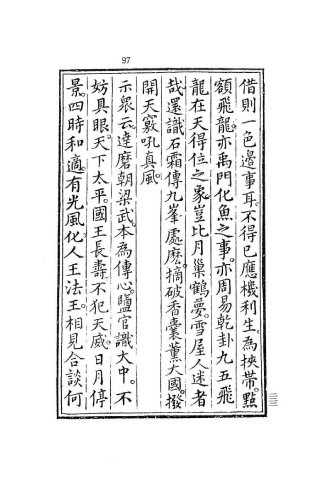 97
借則一色邊事耳。不得已應機利生。為挾帶。點
額飛龍。亦禹門化魚之事。亦周易乾卦九五飛
龍在天得位之象。豈比月巢鶴夢。雪屋人迷者
哉。還識石霜傳九峯處麼。摘破香囊薰大國。撥
開天竅吼真風。
示衆云。達磨朝梁武。本為傳心。鹽官識大中。不
妨具眼。天下太平。國王長壽。不犯天威。日月停
景。四時和適。有光風化。人王法王。相見合談何
二三